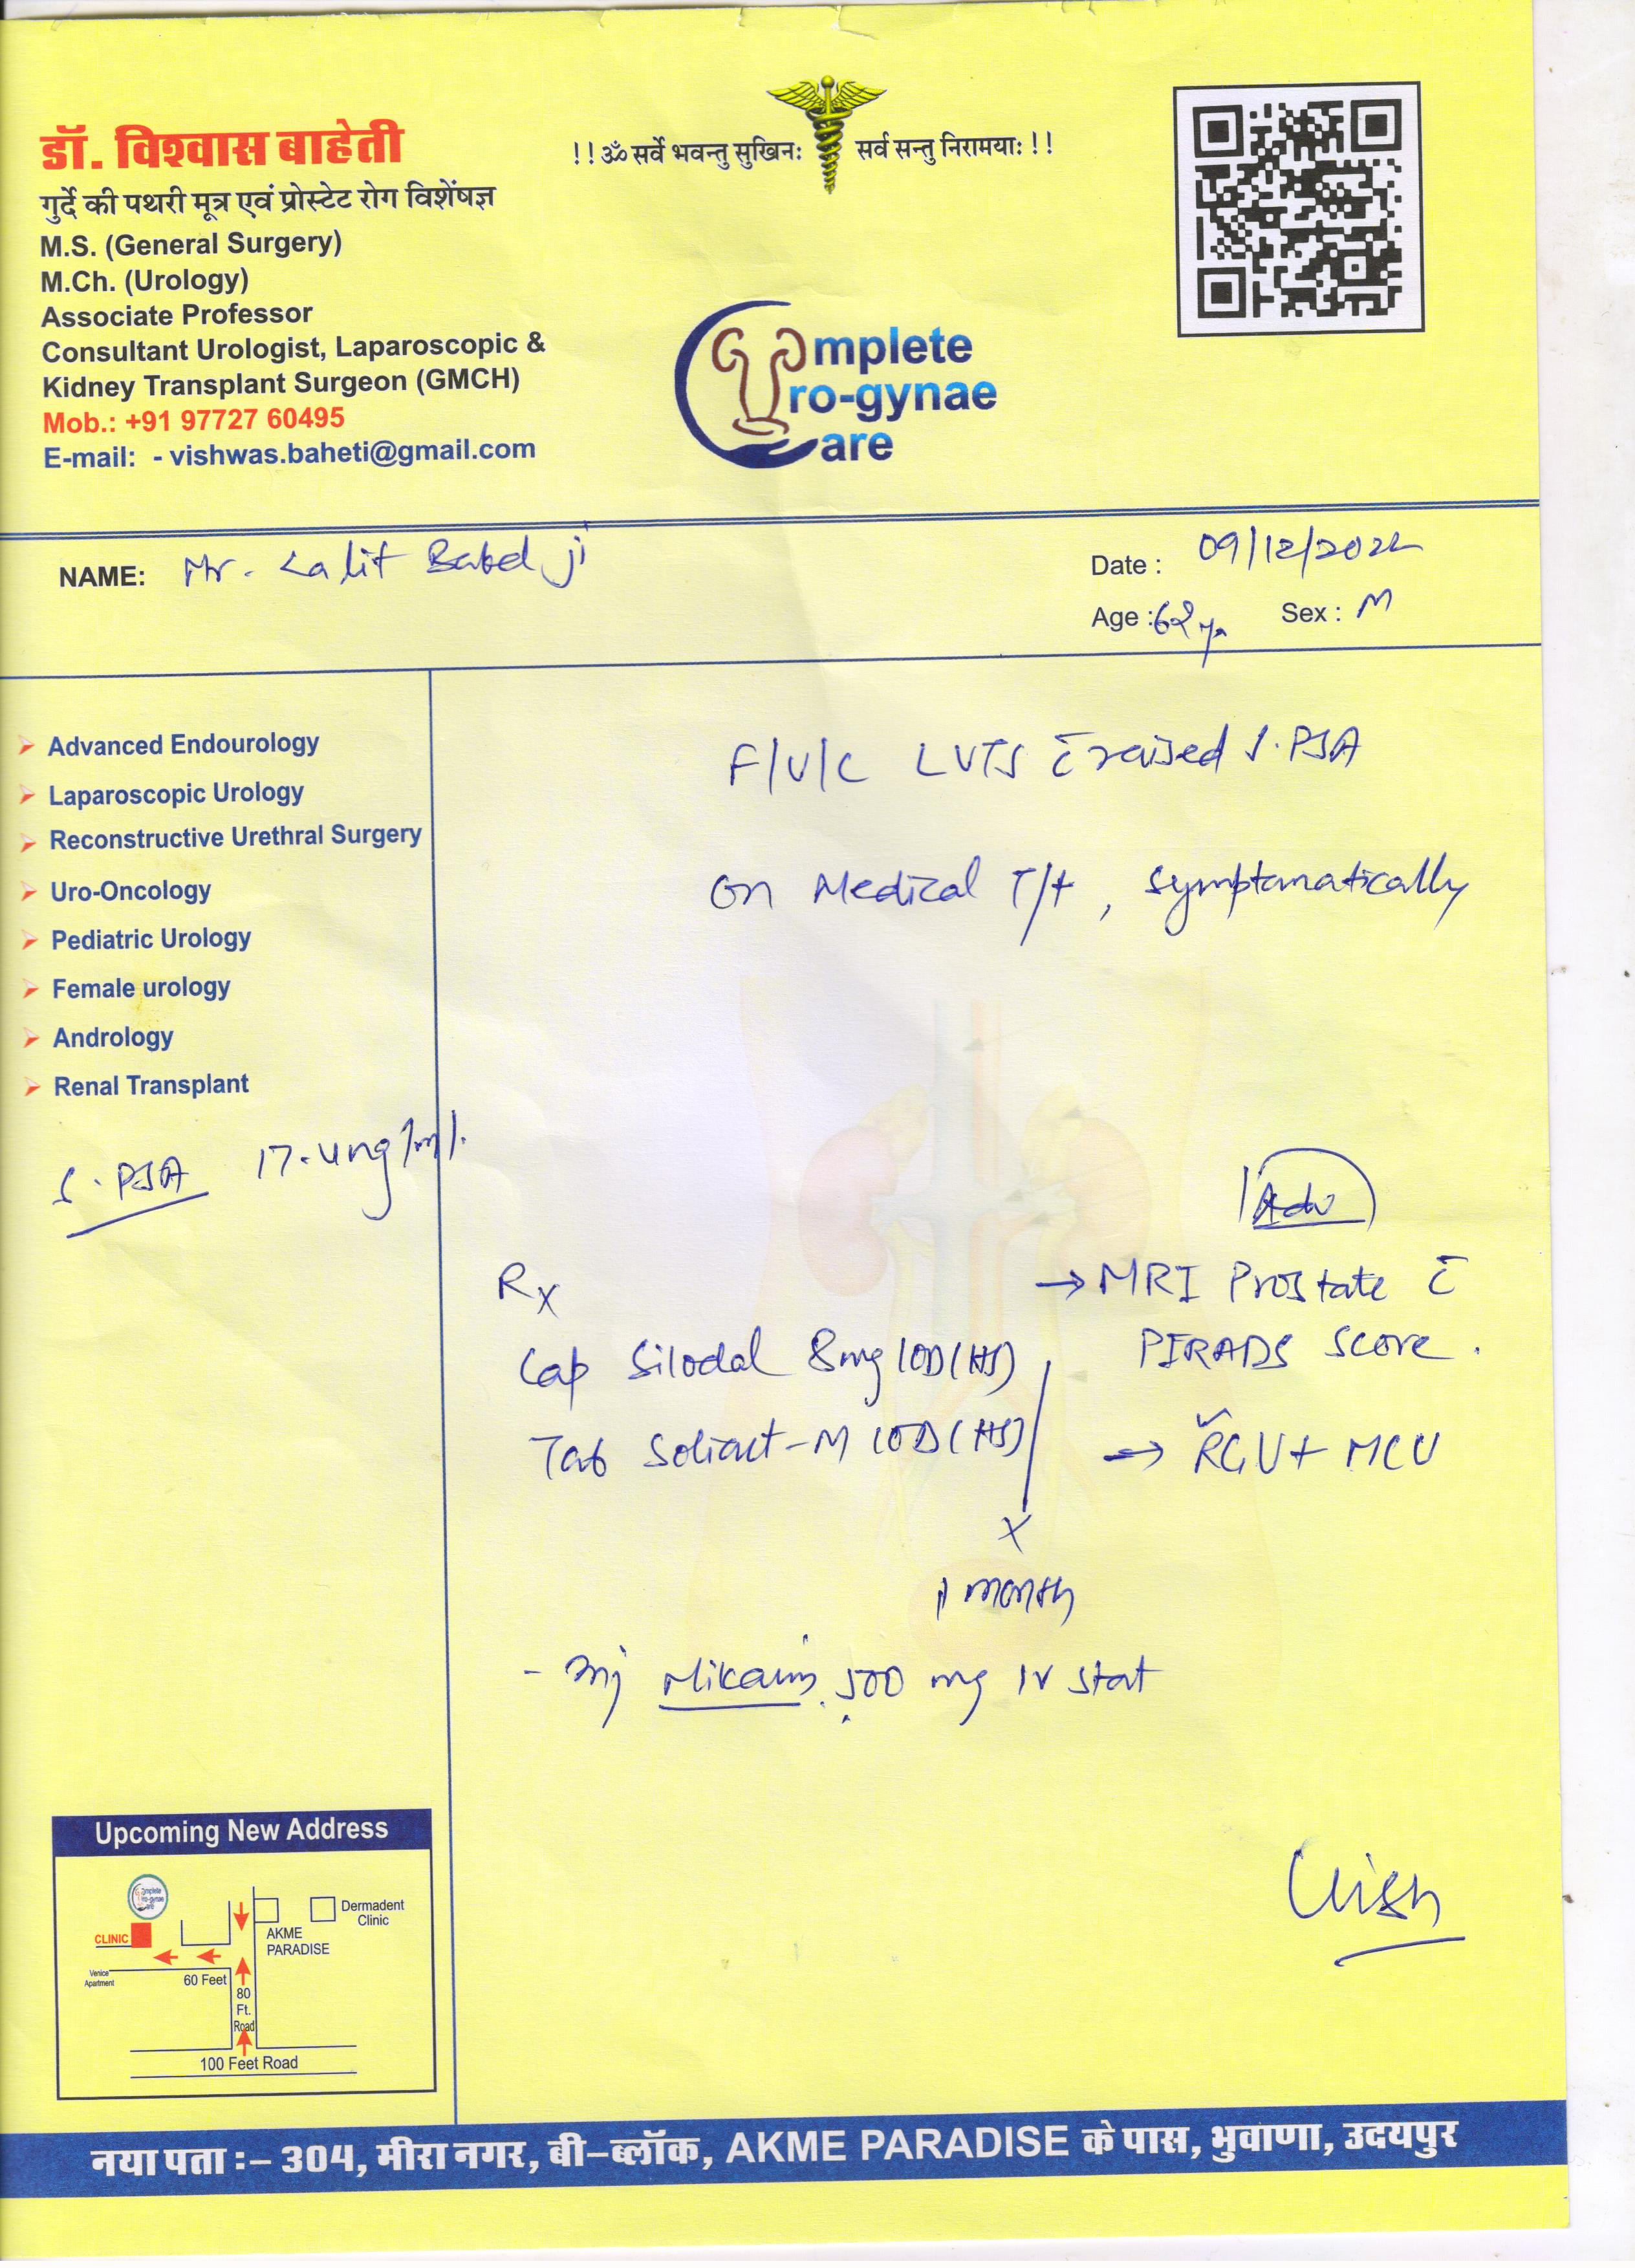 डॉ. विश्वास बाहेती
गुर्दे की पथरी मूत्र एवं प्रोस्टेट रोग विशेंषज्ञ
M.S. (General Surgery)
M.Ch. (Urology)
Associate Professor
Consultant Urologist, Laparoscopic &
Kidney Transplant Surgeon (GMCH)
Mob.: +91 97727 60495
E-mail: - vishwas.baheti@gmail.com
!! ॐ सर्वे भवन्तु सुखिनः सर्व सन्तु निरामयाः !!
Complete
Uro-gynae
Care
NAME: Mr. Lalit Babel ji
Date : 09/12/2022
Age : 62 yr Sex : M
Advanced Endourology
Laparoscopic Urology
Reconstructive Urethral Surgery
Uro-Oncology
Pediatric Urology
Female urology
Andrology
Renal Transplant
S. PSA 17.4ng/ml.
F/U/C LUTS c̄ raised S.PSA
On Medical T/t, symptomatically
Rx
Cap Silodal 8mg 1OD (HS)
Tab Soliact-M 1OD (HS)
x
1 month
- Inj Mikacin 500 mg IV stat
Adv
→ MRI Prostate c̄
PIRADS Score.
→ RGU + MCU
Upcoming New Address
Complete
Uro-gynae
Care
CLINIC
AKME
PARADISE
Dermadent
Clinic
Venice
Apartment
60 Feet
80
Ft.
Road
100 Feet Road
नया पता :– 304, मीरा नगर, बी–ब्लॉक, AKME PARADISE के पास, भुवाणा, उदयपुर